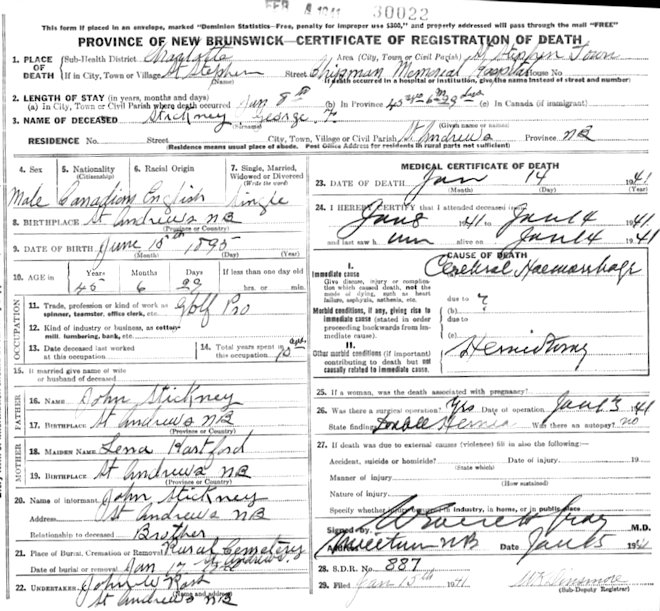 FEB 1941 30022
This form if placed in an envelope, marked "Dominion Statistics—Free, penalty for improper use $300," and properly addressed will pass through the mail "FREE"
PROVINCE OF NEW BRUNSWICK—CERTIFICATE OF REGISTRATION OF DEATH
1. PLACE OF DEATH Sub-Health District Charlotte Area (City, Town or Civil Parish) St Stephen Town
If in City, Town or Village St Stephen Street Chipman Memorial Hospital House No
If death occurred in a hospital or institution, give the name instead of street and number
2. LENGTH OF STAY (in years, months and days)
(a) In City, Town or Civil Parish where death occurred Jan 8th (b) In Province 45 6 29 (c) In Canada (if immigrant)
3. NAME OF DECEASED Stickney George F.
(Surname) (Given name or names)
RESIDENCE No. Street City, Town, Village or Civil Parish St Andrews Province NB
Residence means usual place of abode. Post Office Address for residents in rural parts not sufficient)
4. Sex 5. Nationality (Citizenship) 6. Racial Origin 7. Single, Married, Widowed or Divorced (Write the word)
Male Canadian English Single
8. BIRTHPLACE St Andrews NB
(Province or Country)
9. DATE OF BIRTH June 15th 1895
(Month) (Day) (Year)
10. AGE in Years Months Days If less than one day old
45 6 29 hrs. or min.
OCCUPATION
11. Trade, profession or kind of work as spinner, teamster, office clerk, etc. Golf Pro
12. Kind of industry or business, as cotton-mill, lumbering, bank, etc.
13. Date deceased last worked at this occupation 14. Total years spent in this occupation
15. If married give name of wife or husband of deceased
FATHER
16. NAME John Stickney
17. BIRTHPLACE St Andrews NB
(Province or Country)
MOTHER
18. MAIDEN NAME Lena Hartford
19. BIRTHPLACE St Andrews NB
(Province or Country)
20. Name of informant John Stickney
Address St Andrews NB
Relationship to deceased Brother
21. Place of Burial, Cremation or Removal Rural Cemetery St Andrews
Date of burial or removal Jan 17
22. UNDERTAKER John
(Name and address)
St Andrews NB
MEDICAL CERTIFICATE OF DEATH
23. DATE OF DEATH Jan 14 1941
(Month) (Day) (Year)
24. I HEREBY CERTIFY that I attended deceased
Jan 8 1941 Jan 14 1941
and last saw h im alive on Jan 14 1941
CAUSE OF DEATH
I.
Immediate cause Cerebral Haemorrhage
Give disease, injury or complication which caused death, not the mode of dying, such as heart failure, asphyxia, asthenia, etc.
due to ?
Morbid conditions, if any, giving rise to immediate cause (stated in order proceeding backwards from immediate cause).
(b)
due to
(c)
II.
Other morbid conditions (if important) contributing to death but not causally related to immediate cause.
Herniotomy
25. If a woman, was the death associated with pregnancy?
26. Was there a surgical operation? Yes Date of operation Jan 1941
State findings Double Hernia Was there an autopsy? no
27. If death was due to external causes (violence) fill in also the following:—
Accident, suicide or homicide? Date of injury 19
(State which)
Manner of injury
(How sustained)
Nature of injury
Specify whether injury occurred in industry, in home, or in public place
Signed by Everett Gray M.D.
Address Milltown NB Date Jan 15 1941
28. S.D.R. No. 887
29. Filed Jan 15th 1941
(Sub-Deputy Registrar)